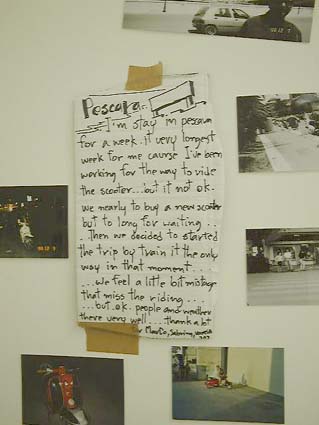 Pescara..
I'm stay in pescara
for a week. it very longest
week for me caurse I've been
working for the way to ride
the scooter...but it not ok.
we nearly to buy a new scooter
but to long for waiting..
..Then we decided to started
the trip by train it the only
way in that moment...
...we feel a little bit mistage
that miss the riding...
...but ok. people and weather
there very well....thank a lot
for Mauro, Sabrina,